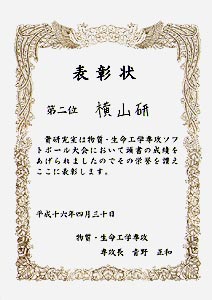 表彰状
第二位 横山研
貴研究室は物質・生命工学専攻ソフ
トボール大会において頭書の成績を
あげられましたのでその栄誉を讃え
ここに表彰します。
平成十六年四月三十日
物質・生命工学専攻
専攻長 青野 正和